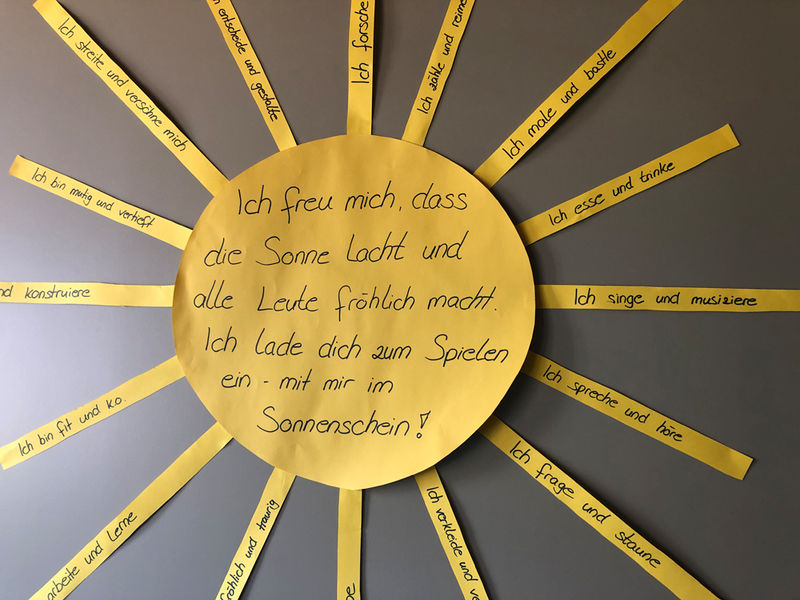 Ich freu mich, dass
die Sonne lacht und
alle Leute fröhlich macht.
Ich lade dich zum Spielen
ein - mit mir im
Sonnenschein!
Ich streite und versöhne mich
entscheide und gestalte
Ich forsche
Ich zähle und reime
Ich male und bastle
Ich esse und trinke
Ich singe und musiziere
Ich spreche und höre
Ich frage und staune
Ich verkleide und
fröhlich und traurig
arbeite und lerne
Ich bin fit und k.o.
und konstruiere
Ich bin mutig und vertieft